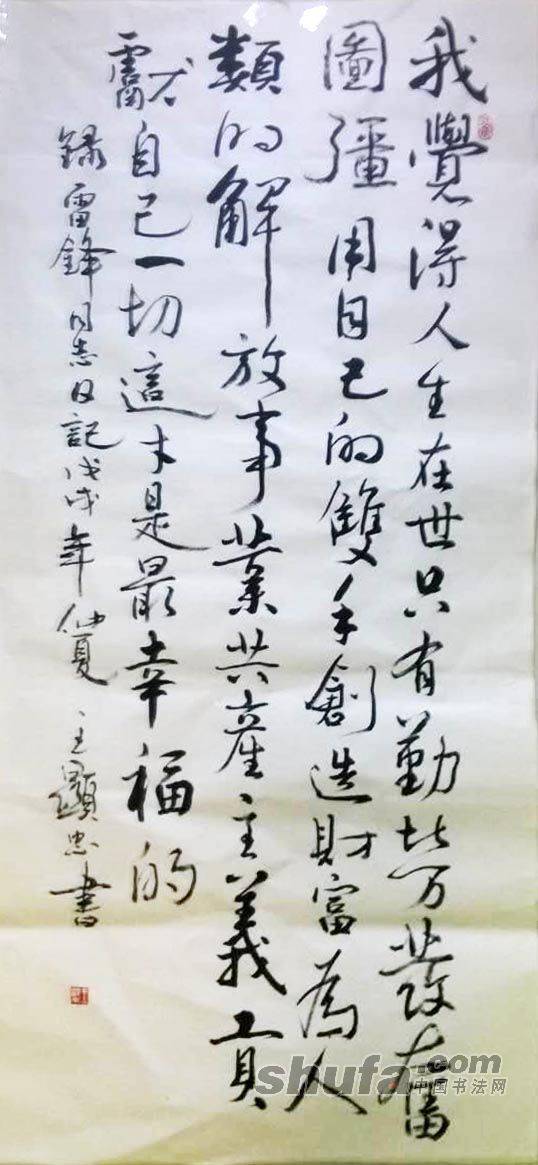 我覺得人生在世只有勤勞發奮
圖彊用自己的雙手創造財富為人
類的解放事業共產主義貢
獻自己一切這才是最幸福的
錄雷鋒同志日記戊戌年仲夏王顯忠書
shufa.com
中国书法网